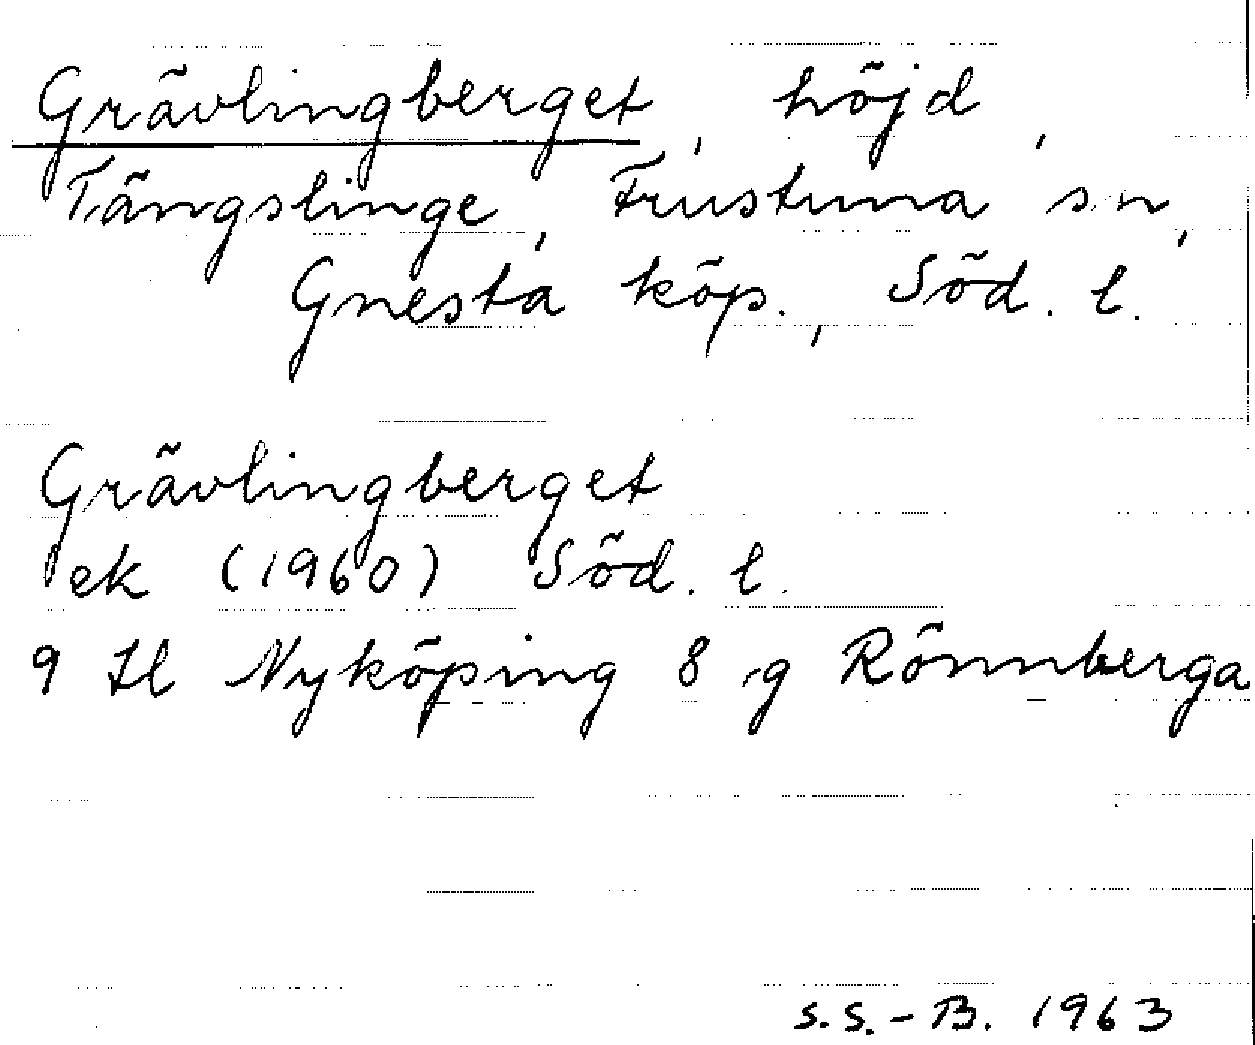 Grävlingberget, höjd,
Tängslinge, Frustuna sn,
Gnesta köp., Söd. l.
Grävlingberget
ek (1960) Söd. l.
9 H Nyköping 8 g Rönnberga
S.S.-B. 1963